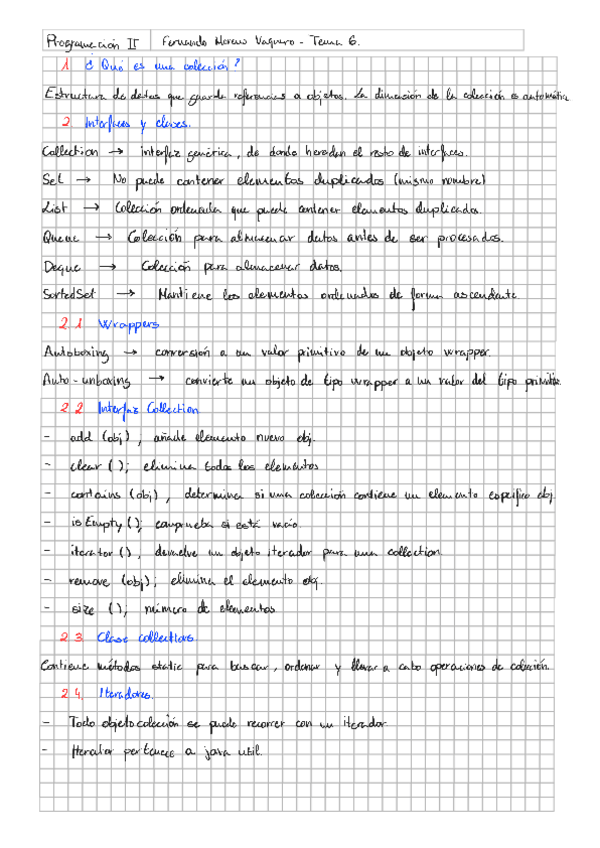 Programación II Fernando Moreno Vaquero - Tema 6.
1. ¿Qué es una colección?
Estructura de datos que guarda referencias a objetos. La dimensión de la colección es automática
2. Interfaces y clases.
Collection → interfaz genérica, de donde heredan el resto de interfaces.
Set → No puede contener elementos duplicados (mismo nombre)
List → Colección ordenada que puede contener elementos duplicados.
Queue → Colección para almacenar datos antes de ser procesados.
Deque → Colección para almacenar datos.
SortedSet → Mantiene los elementos ordenados de forma ascendente
2.1 Wrappers
Autoboxing → conversión a un valor primitivo de un objeto wrapper.
Auto-unboxing → convierte un objeto de tipo wrapper a un valor del tipo primitivo.
2.2 Interfaz Collection
- add (obj), añade elemento nuevo obj.
- clear (); elimina todos los elementos
- contains (obj), determina si una colección contiene un elemento específico obj.
- isEmpty (); comprueba si está vacío.
- iterator (), devuelve un objeto iterador para una collection.
- remove (obj); elimina el elemento obj.
- size (); número de elementos
2.3 Clase collections.
Contiene métodos static para buscar, ordenar y llevar a cabo operaciones de colección.
2.4. Iteradores.
- Todo objeto colección se puede recorrer con un iterador
- Iterator pertenece a java util.